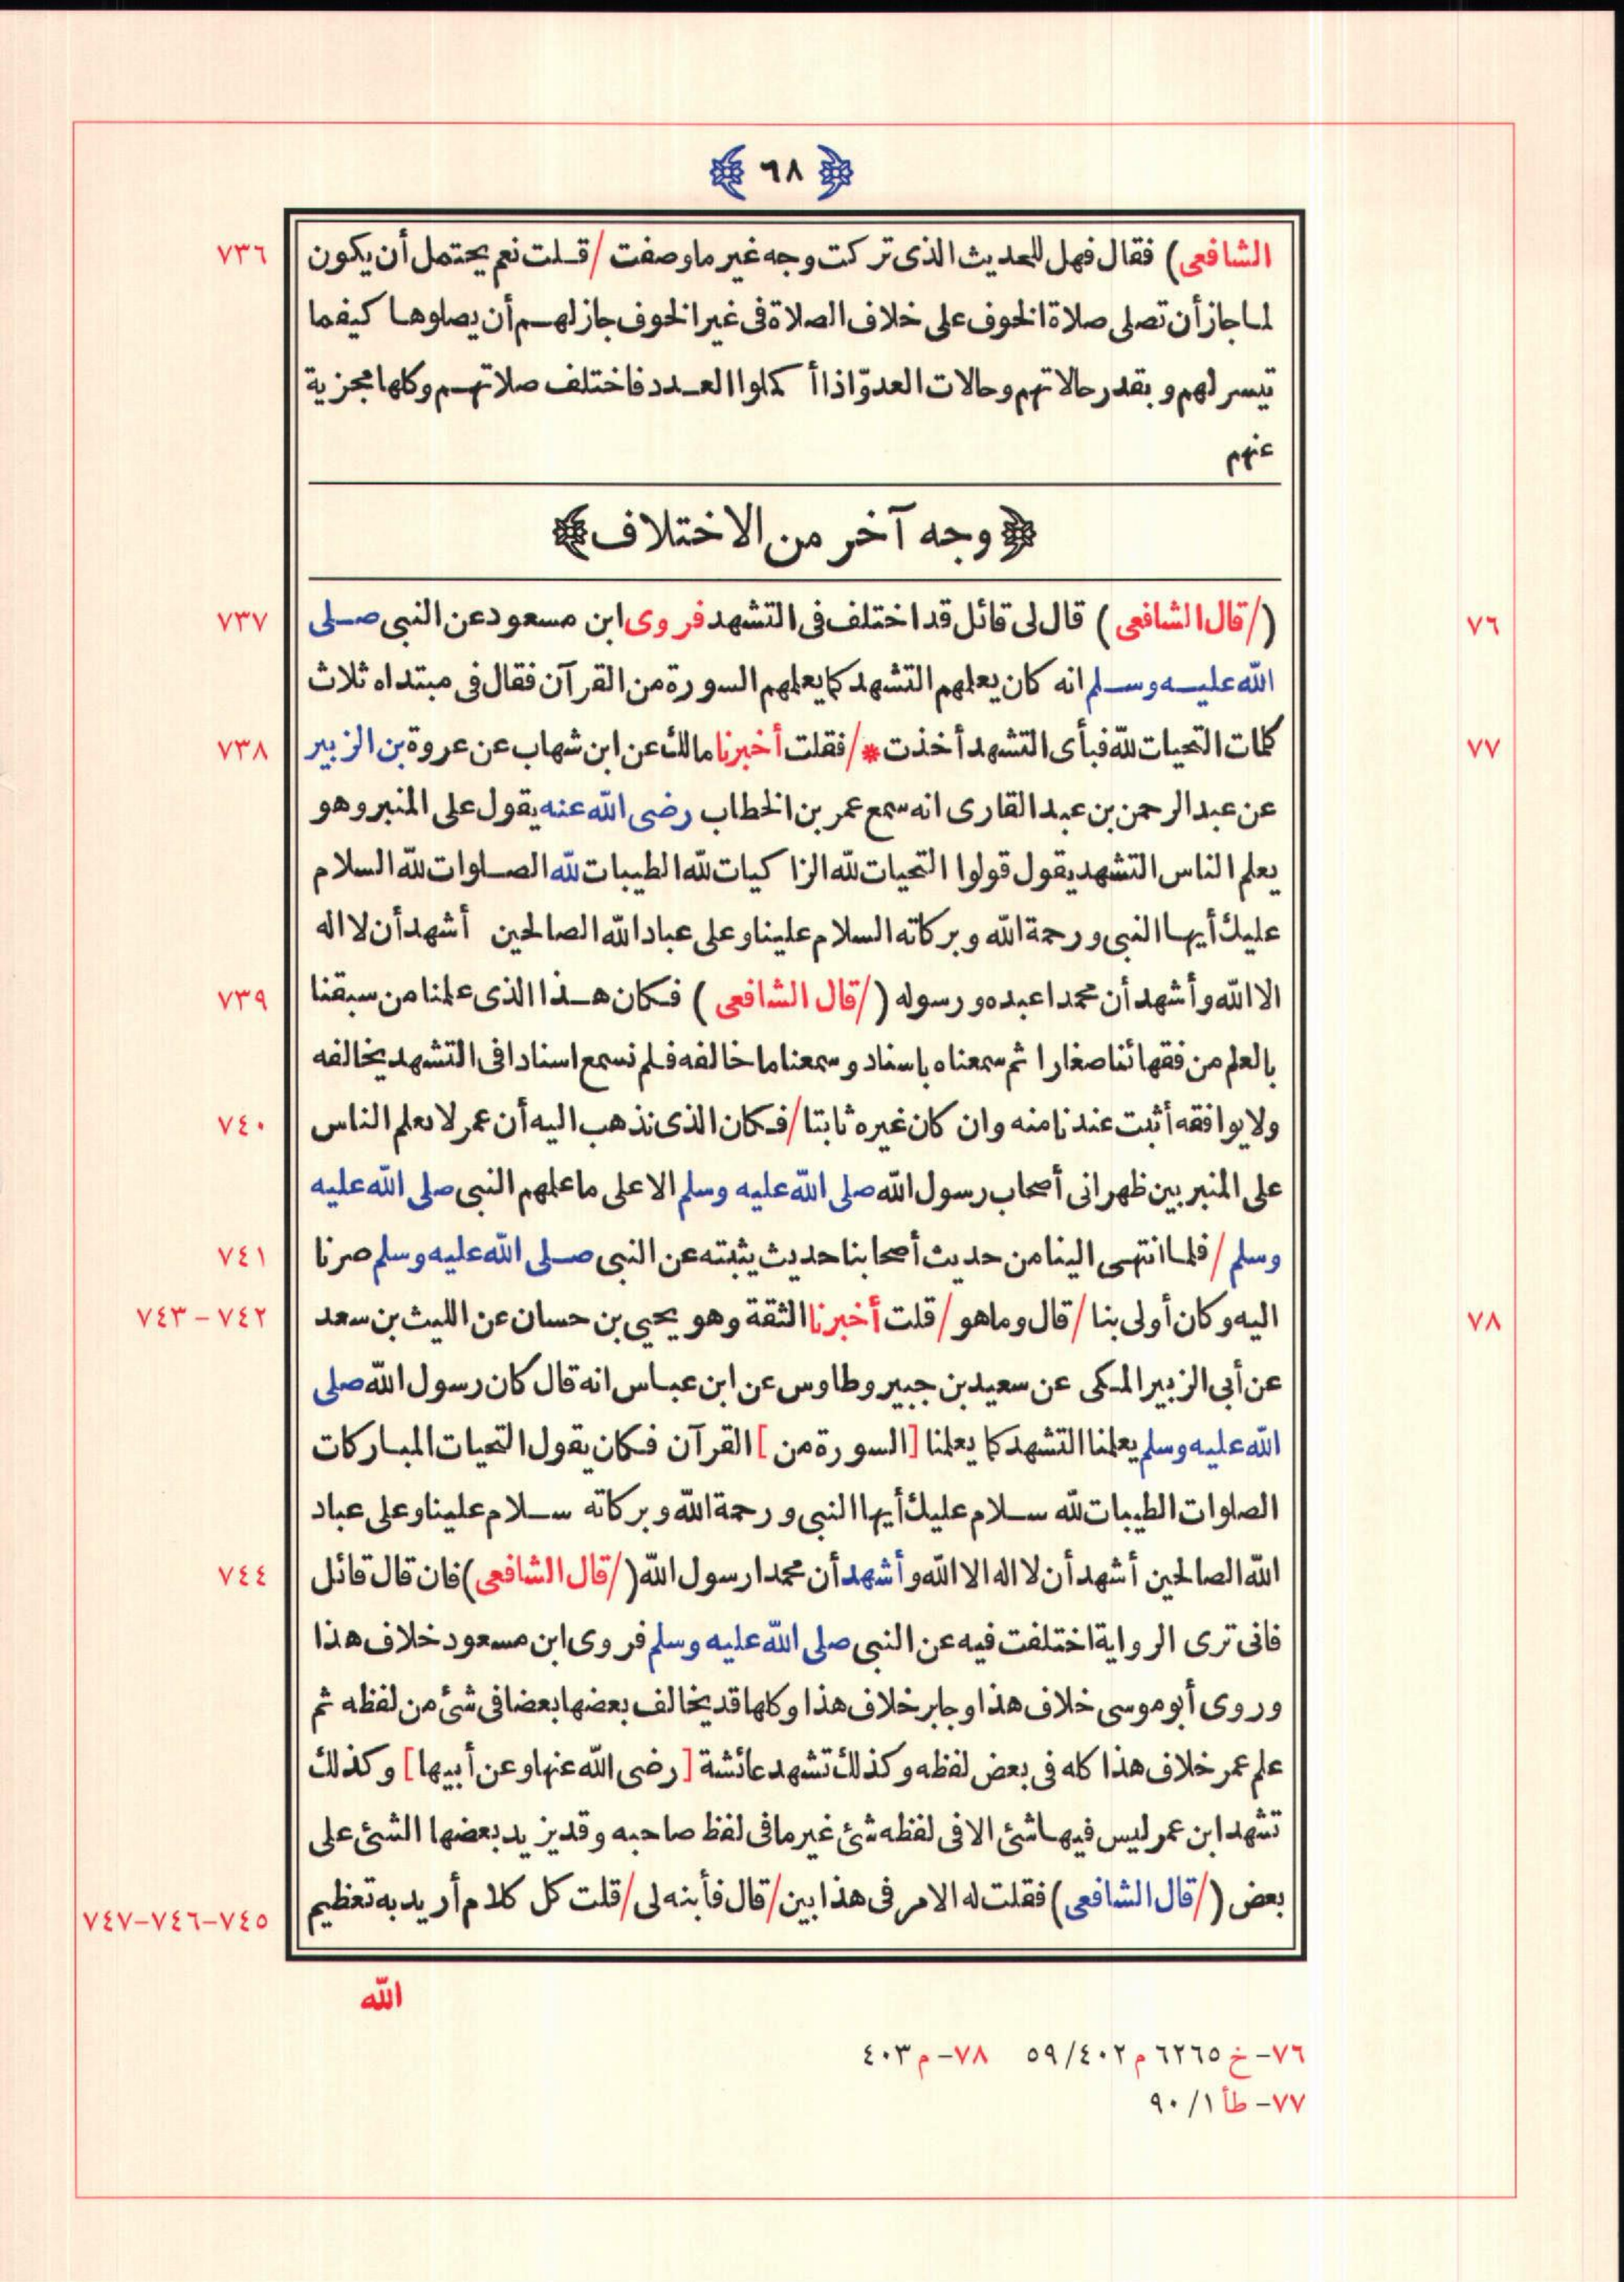 ﴿ ٦٨ ﴾
الشافعى) فقال فهل للحديث الذى تركت وجه غير ما وصفت /قلت نعم يحتمل أن يكون ٧٣٦
لما جاز أن تصلى صلاة الخوف على خلاف الصلاة فى غير الخوف جاز لهم أن يصلوها كيفما
تيسر لهم وبقدر حالاتهم وحالات العدوّ اذا أكملوا العدد فاختلف صلاتهم وكلها مجزية
عنهم
﴿وجه آخر من الاختلاف﴾
٧٦ (/قال الشافعى) قال لى قائل قد اختلف فى التشهد فروى ابن مسعود عن النبى صلى ٧٣٧
الله عليه وسلم انه كان يعلمهم التشهد كما يعلمهم السورة من القرآن فقال فى مبتداه ثلاث
٧٧ كلمات التحيات لله فبأى التشهد أخذت */فقلت أخبرنا مالك عن ابن شهاب عن عروة بن الزبير ٧٣٨
عن عبد الرحمن بن عبد القارى انه سمع عمر بن الخطاب رضى الله عنه يقول على المنبر وهو
يعلم الناس التشهد يقول قولوا التحيات لله الزاكيات لله الطيبات لله الصلوات لله السلام
عليك أيها النبى ورحمة الله وبركاته السلام علينا وعلى عباد الله الصالحين أشهد أن لا اله
الا الله وأشهد أن محمدا عبده ورسوله (/قال الشافعى) فكان هذا الذى علمنا من سبقنا ٧٣٩
بالعلم من فقهائنا صغارا ثم سمعناه باسناد وسمعنا ما خالفه فلم نسمع اسنادا فى التشهد يخالفه
ولا يوافقه أثبت عندنا منه وان كان غيره ثابتا /فكان الذى نذهب اليه أن عمر لا يعلم الناس ٧٤٠
على المنبر بين ظهرانى أصحاب رسول الله صلى الله عليه وسلم الا على ما علمهم النبى صلى الله عليه
وسلم /فلما انتهى الينا من حديث أصحابنا حديث يثبته عن النبى صلى الله عليه وسلم صرنا ٧٤١
٧٨ اليه وكان أولى بنا /قال وما هو /قلت أخبرنا الثقة وهو يحيى بن حسان عن الليث بن سعد ٧٤٢-٧٤٣
عن أبى الزبير المكى عن سعيد بن جبير وطاوس عن ابن عباس انه قال كان رسول الله صلى
الله عليه وسلم يعلمنا التشهد كما يعلمنا [السورة من] القرآن فكان يقول التحيات المباركات
الصلوات الطيبات لله سلام عليك أيها النبى ورحمة الله وبركاته سلام علينا وعلى عباد
الله الصالحين أشهد أن لا اله الا الله وأشهد أن محمدا رسول الله (/قال الشافعى) فان قال قائل ٧٤٤
فانى ترى الرواية اختلفت فيه عن النبى صلى الله عليه وسلم فروى ابن مسعود خلاف هذا
وروى أبو موسى خلاف هذا وجابر خلاف هذا وكلها قد يخالف بعضها بعضا فى شئ من لفظه ثم
علم عمر خلاف هذا كله فى بعض لفظه وكذلك تشهد عائشة [رضى الله عنها وعن أبيها] وكذلك
تشهد ابن عمر ليس فيها شئ الا فى لفظه شئ غير ما فى لفظ صاحبه وقد يزيد بعضها الشئ على
بعض (/قال الشافعى) فقلت له الامر فى هذا بين /قال فأبنه لى /قلت كل كلام أريد به تعظيم ٧٤٥-٧٤٦-٧٤٧
الله
٧٦- خ ٦٢٦٥ م ٥٩/٤٠٢ ٧٨- م ٤٠٣
٧٧- طأ ٩٠/١